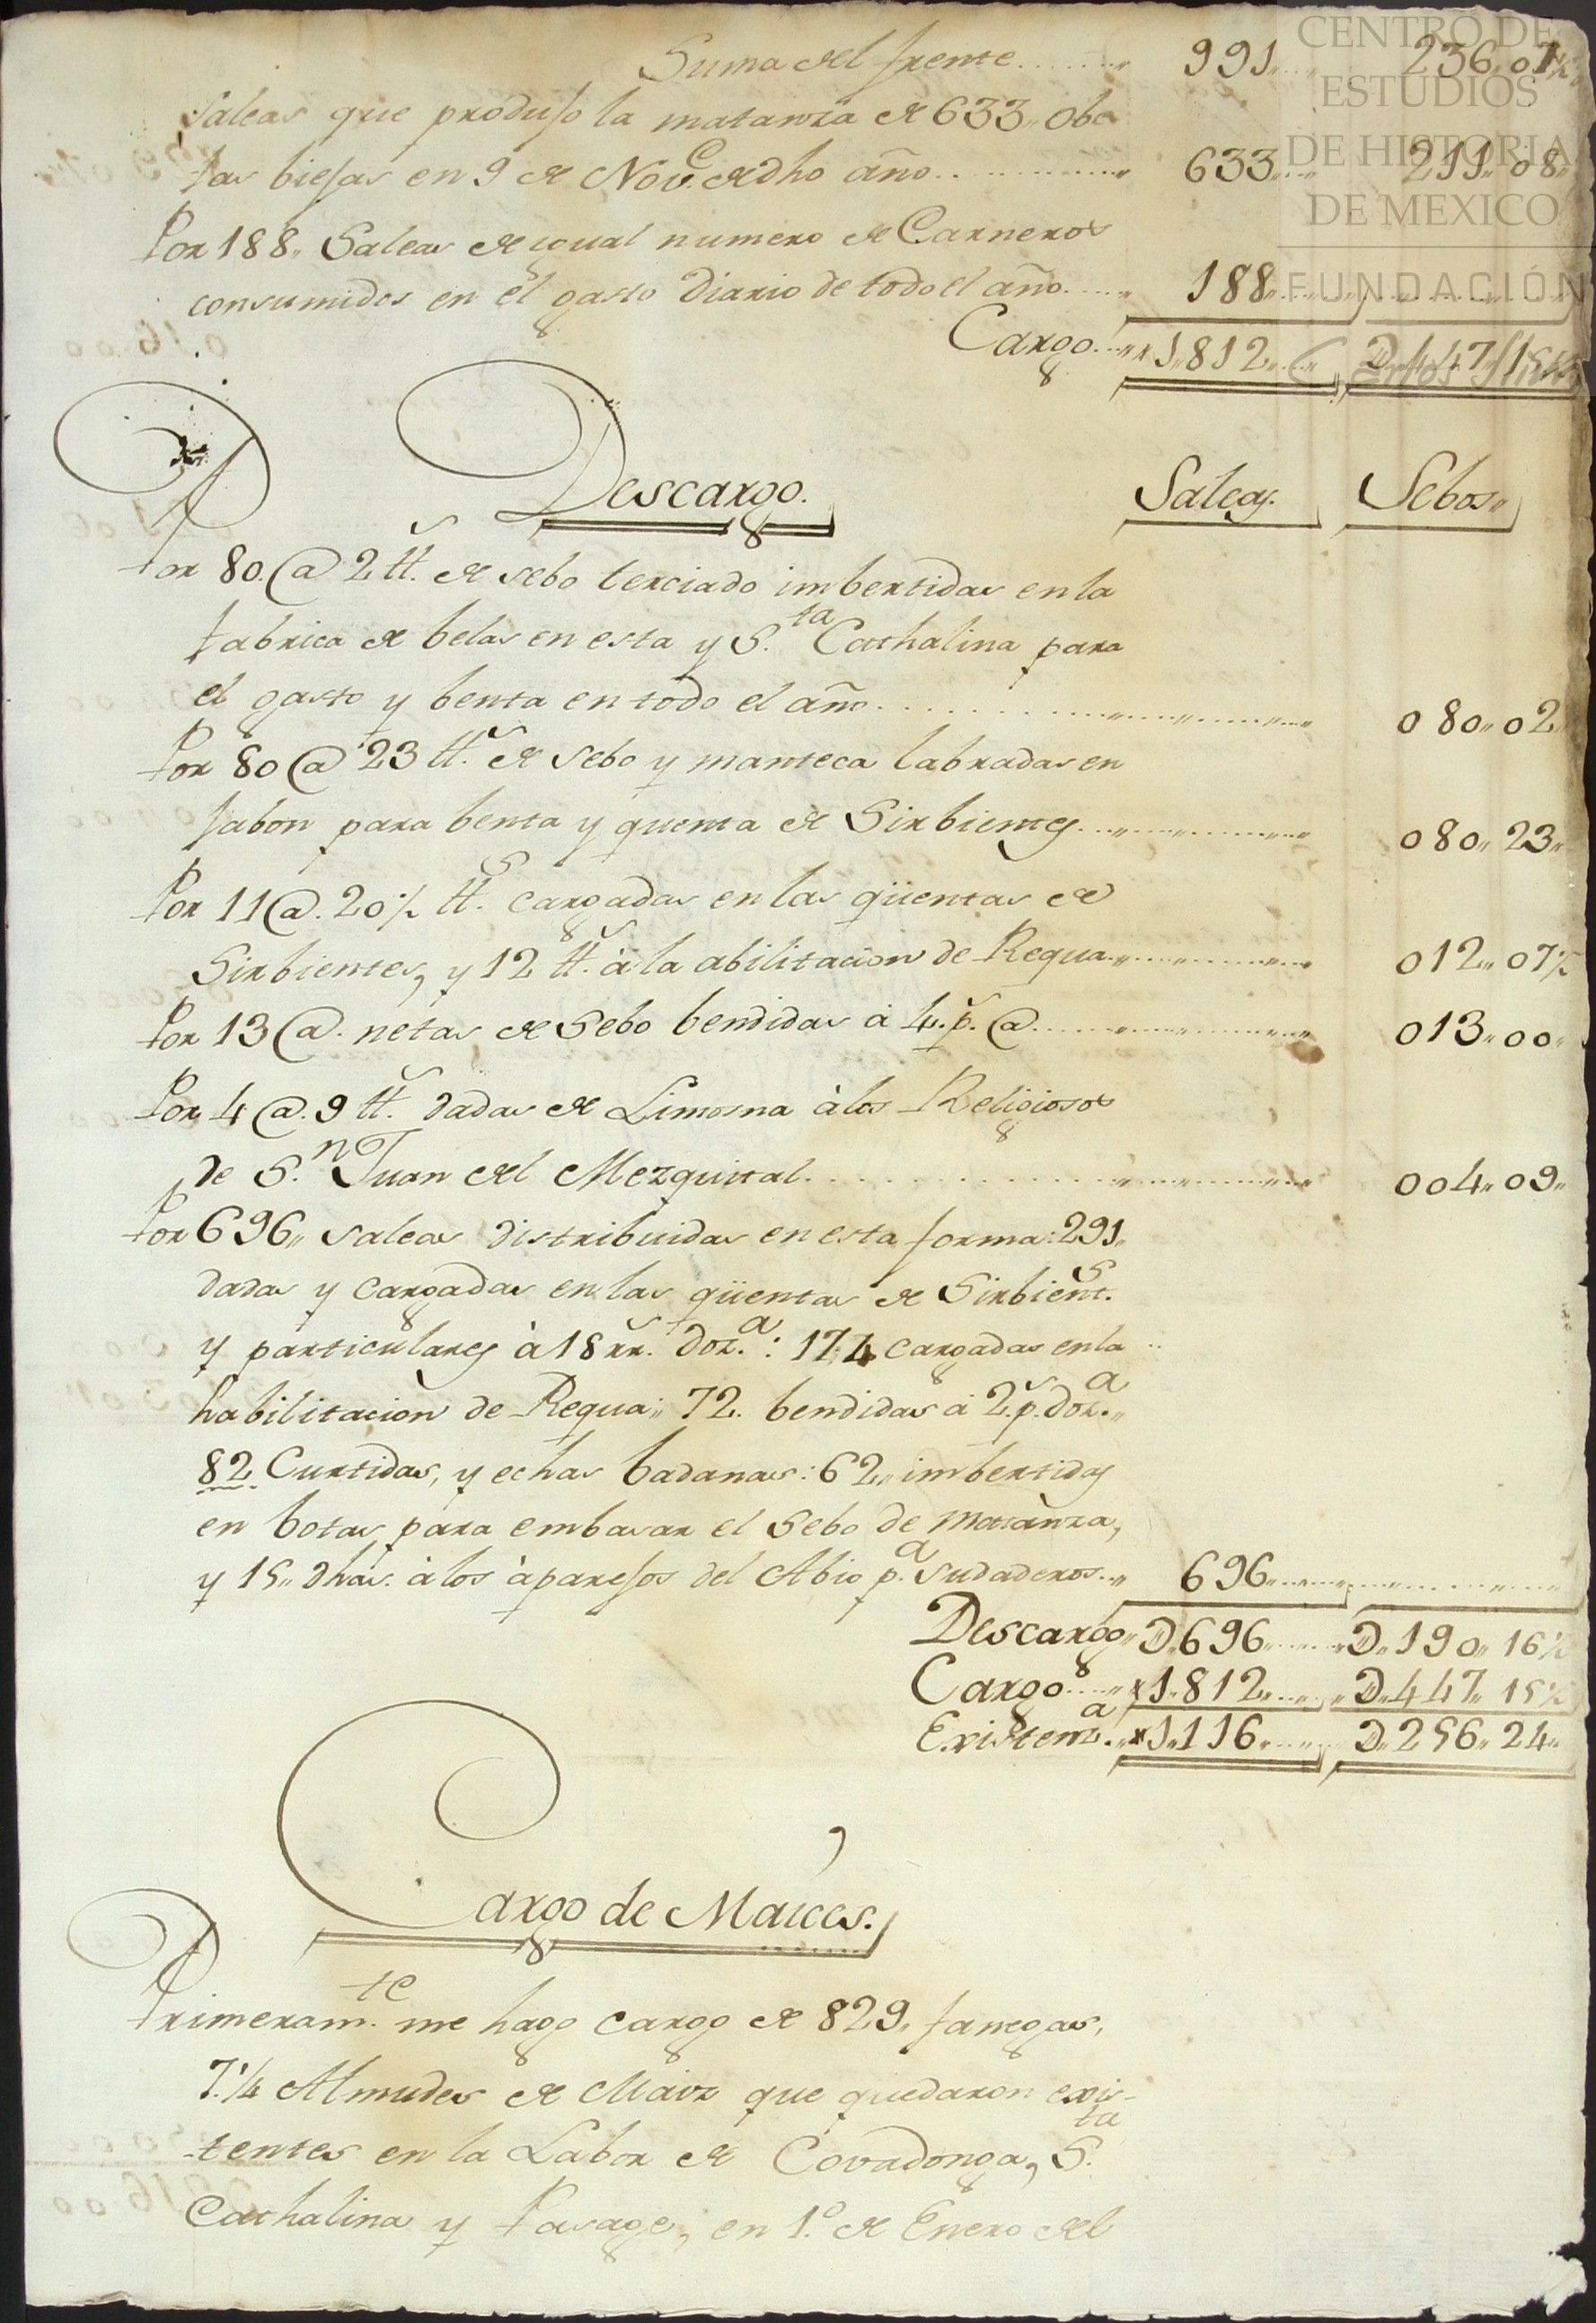 Suma del frente........ 991.... 236,,07½
Saleas que produjo la matanza de 633,, obe
jas biejas en 9 de Nov.e de dho año............ 633.... 211,,08,,
Por 188,, Saleas de igual numero de Carneros
consumidos en el gasto Diario de todo el año..... 188....
Cargo...,, 1,,812.... D,,447,,15½
Descargo. Saleas. Sebos,,
Por 80.@ 2 tt.s de sebo terciado imbertidas en la
fabrica de belas en esta y S.ta Cathalina para
el gasto y benta en todo el año.................... 080,,02,,
Por 80@ 23 tt.s de Sebo y manteca labradas en
Jabon para benta y quenta de Sirbientes............ 080,,23,,
Por 11@. 20½ tt.s cargadas en las qüentas de
Sirbientes, y 12 tt.s à la abilitacion de Requa............ 012,,07½
Por 13@. netas de Sebo bendidas à 4.p.s @............ 013,,00,,
Por 4@. 9 tt.s dadas de Limosna à los Religiosos
de S.n Juan del Mezquital.................... 004,,09,,
Por 696,, saleas distribuidas en esta forma: 291,,
dadas y cargadas en las qüentas de Sirbient.s
y particulares à 18 rr.s doz.a: 174 cargadas en la
habilitacion de Requa; 72. bendidas à 2.p.s doz.a,,
82 Curtidas, y echas badanas: 62,, imbertidas
en botas para embasar el Sebo de Matanza,
y 15,, dhas. à los àparejos del Abio p.a sudaderos..,, 696............
Descargo,, D,,696.... D,,190,,16½
Cargo....,, 1,,812.... D,,447,,15½
Existenz.a.,, 1,,116.... D,,256,,24,,
Cargo de Maices.
Primeram.te me hago cargo de 829,, fanegas,
7.¼ Almudes de Maiz que quedaron exis-
tentes en la Labor de Covadonga, S.ta
Cathalina y Pasage, en 1.o de Enero del
CENTRO DE
ESTUDIOS
DE HISTORIA
DE MEXICO
FUNDACIÓN